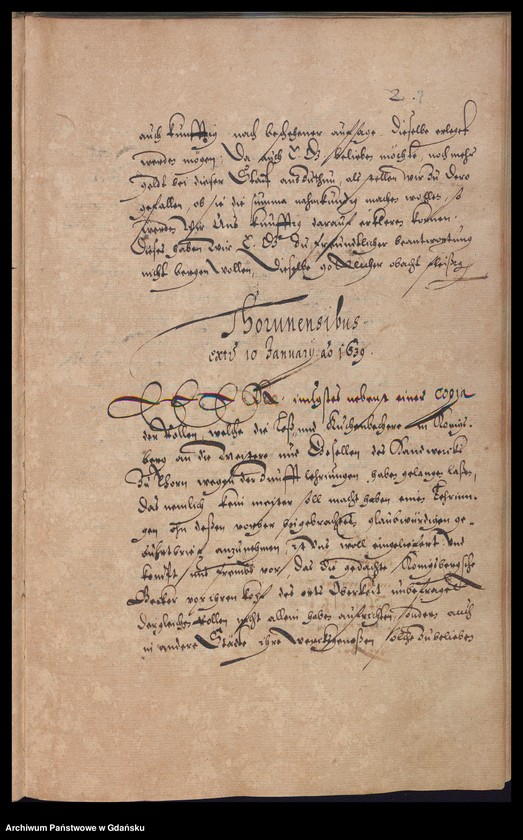 2.
auch kunfftig nach beschehener aufsage dieselbe erleget
werden mögen. Da auch E. E. belieben möchte, noch mehr
geldt bei dieser Stadt ausZuthun, als stellen wir Zu dero
gefallen, ob sie die summa nahmkundig machen wollen, so
werden Wir Uns kunfftig darauf erkleren können.
Dieses haben wir E. E. Zu freundlicher beantwortung
nicht bergen wollen, dieselbe Göttlicher obacht
Thorunensibus.
10 January ao 1639.
E E E jüngstes nebenst einer copia
der Rollen welche die Loß und Kuchenbecker in Konigs-
berg an die Meister und Gesellen des Handwercks
Zu Thorn wegen der Zunfft lehrjungen, haben gelangen laßen,
das nemlich kein meister soll macht haben einen Lehrjun-
gen ohn deßen vorher beigebrachtes glaubwürdigen ge-
burthsbrief anzunehmen, ist Uns woll eingeliefert. Und
kompt uns frembd vor, das die gedachte Königsbergische
Becker vor ihren kopf des orts Oberkeit unbefraget
dergleichen Rollen nicht allein haben aufrichten, sondern auch
in andere Städte ihre werckgenoßen solche Zubelieben
Archiwum Państwowe w Gdańsku